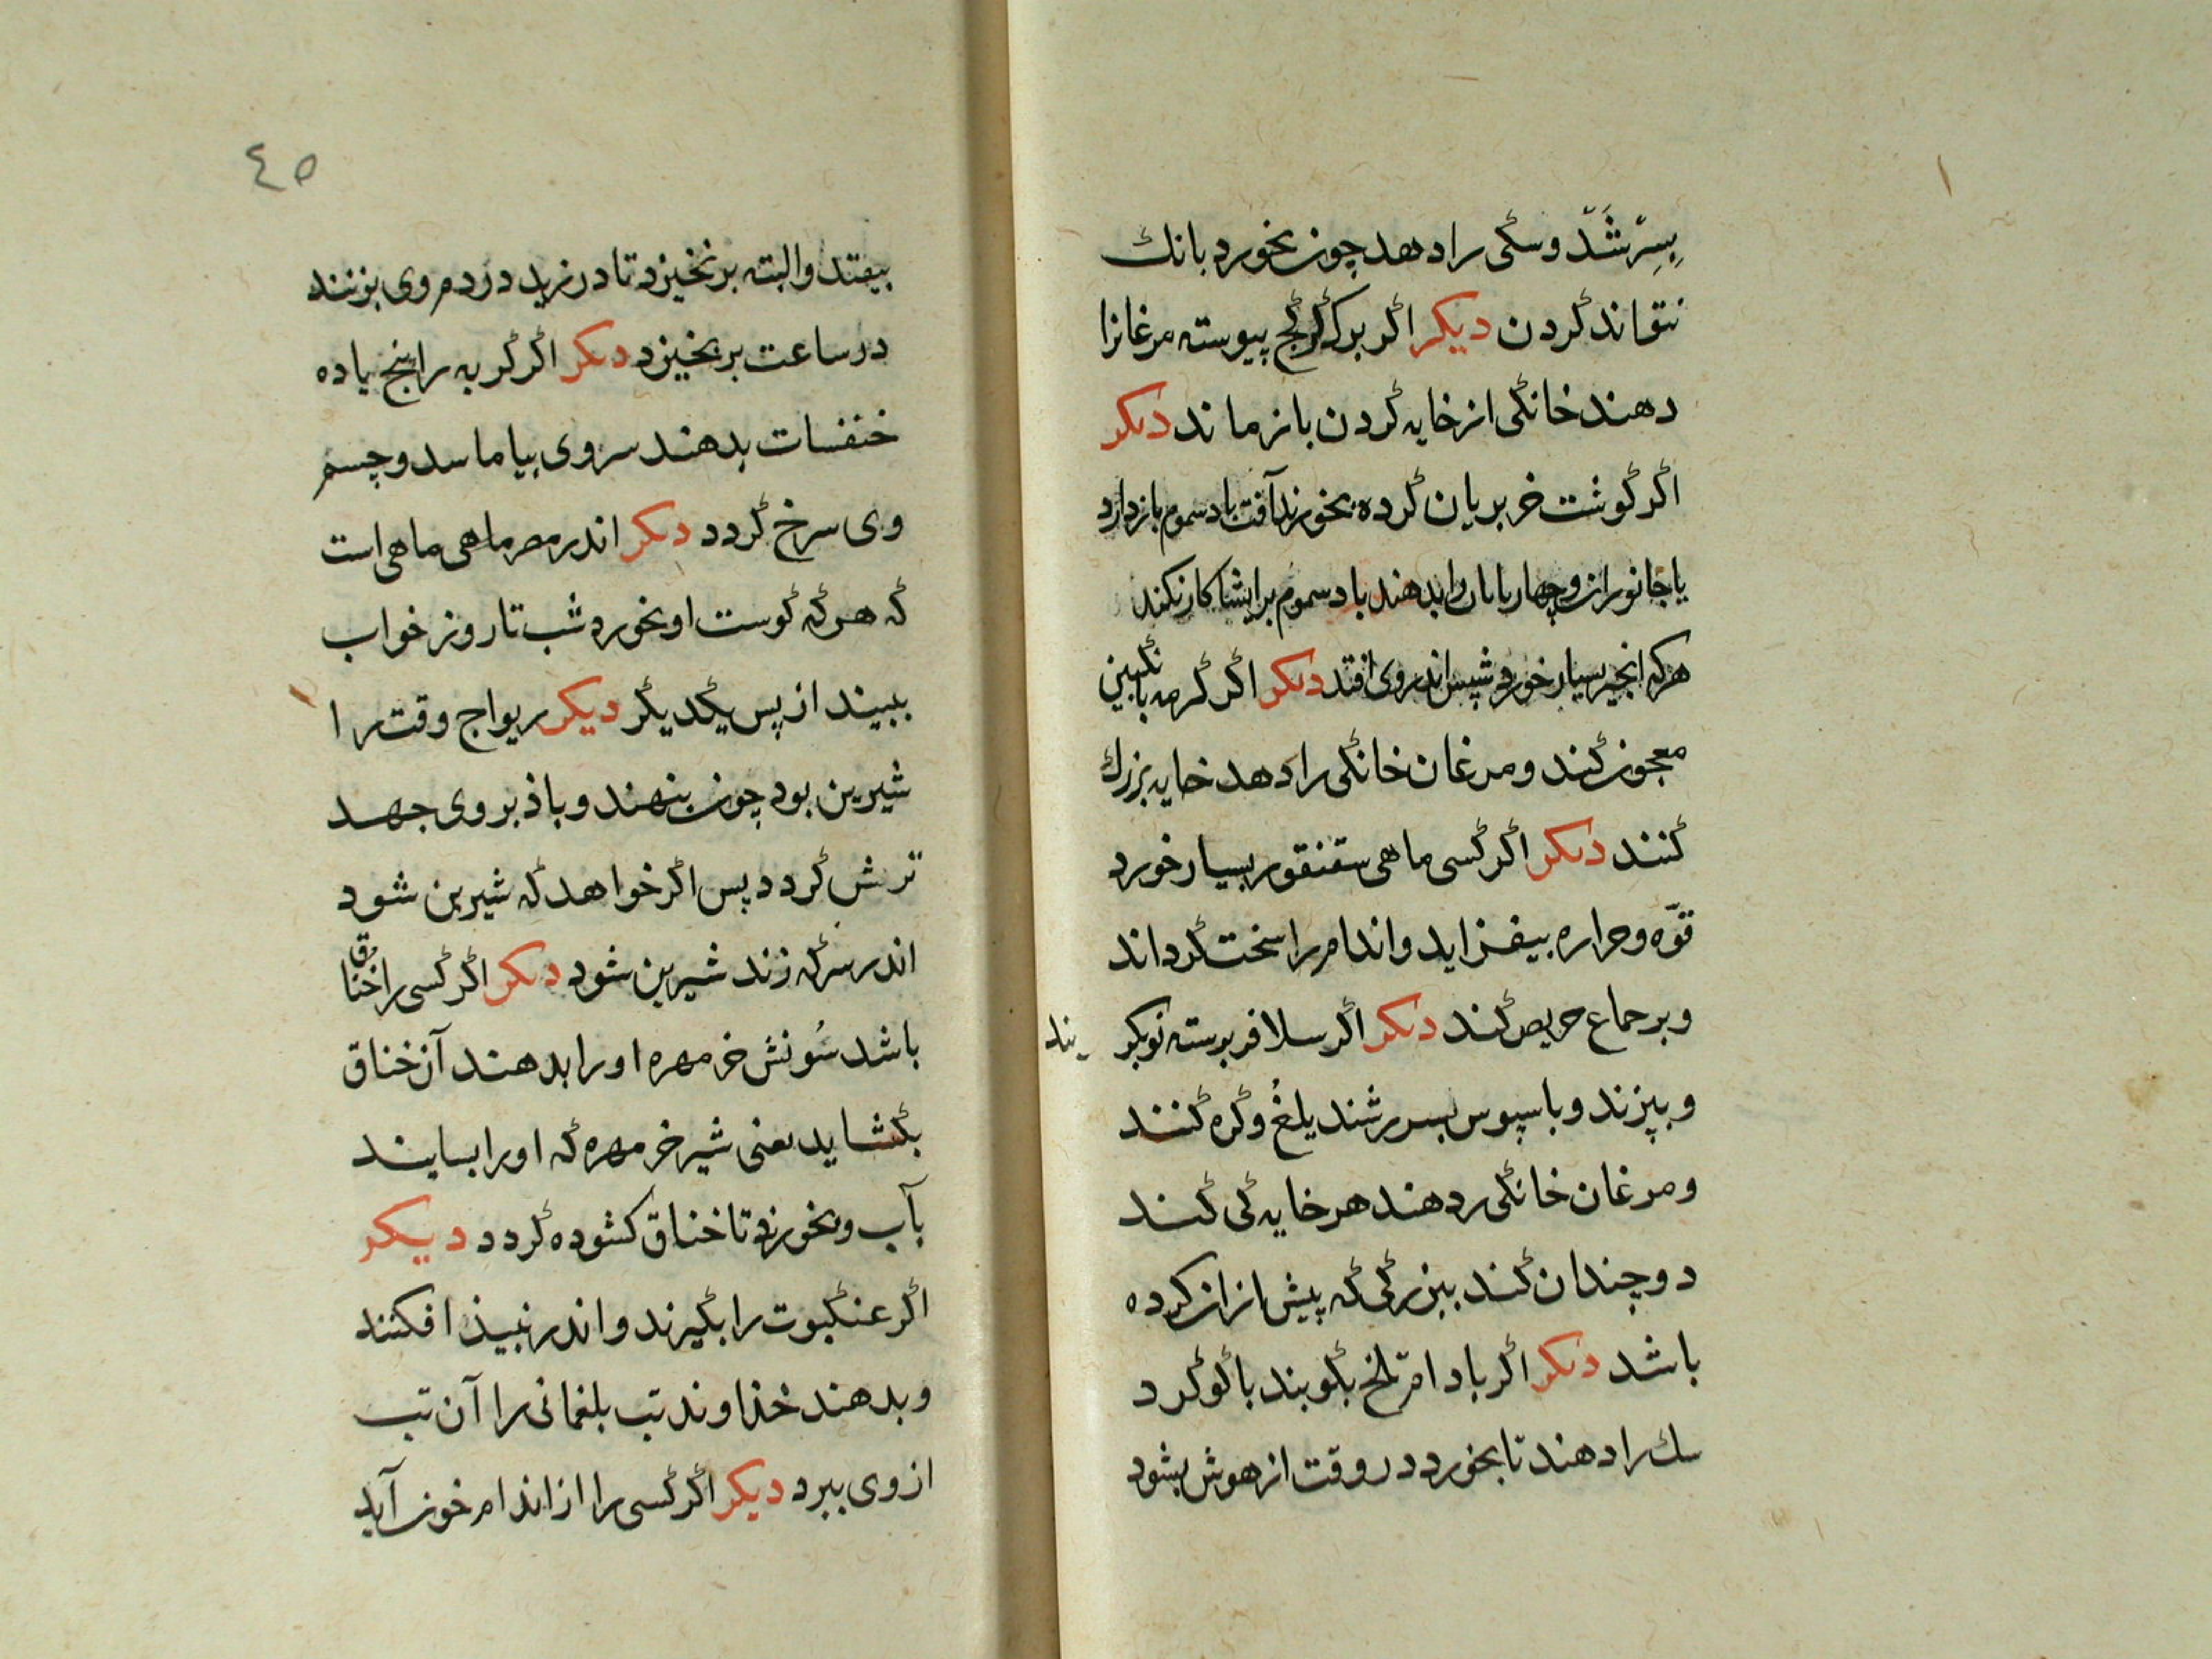 بسرشد و سگی را دهد چون بخورد بانك
نتواند کردن دیکر اکر برك کرنج پیوسته مرغانرا
دهند خانکی از خایه کردن باز ماند دیکر
اکر کوشت خر بریان کرده بخورند آفت باد سموم باز دارد
یا جانوران و چهارپایان را بدهند باد سموم برایشا کار نکند
هرکه انجیر بسیار خورد شپس اندر وی افتد دیکر اکر کرمه بانکبین
معجون کند و مرغان خانکی را دهد خایه بزرك
کنند دیکر اکر کسی ماهی سقنقور بسیار خورد
قوّه و حراره بیفزاید و اندام را سخت کرداند
و بر جماع حریص کند دیکر اکر سلافر برسته نوبکر
یند
و بپزند و با سپوس بسررشند یلغ و کره کنند
و مرغان خانکی ر دهند هر خایه کی کند
دو چندان کند ببزرکی که پیش از ان کرده
باشد دیکر اکر بادام تلخ بکوبند با کوکرد
سك را دهند تا بخورد در وقت از هوش بشود
٤٥
بیفتد و البته برنخیزد تا در زید در دم وی بزنند
در ساعت برخیزد دیکر اکر کربه را پنج یا ده
خنفسات بدهند سر وی بیاماسد و چسم
وی سرخ کردد دیکر اندر مصر ماهی ماهی است
که هرکه کوست او بخورد شب تا روز خواب
ببیند از پس یکدیکر دیکر ریواج وقت را
شیرین بود چون بنهند و باذ بر وی جهد
ترش کردد پس اکر خواهد که شیرین شود
اندر سرکه زند شیرین شود دیکر اکر کسی را خناق
باشد سُونش خر مهره او را بدهند آن خناق
بکشاید یعنی شیر خر مهره که او را بسایند
بآب و بخورند تا خناق کشوده کردد دیکر
اکر عنکبوت را بکیرند و اندر نبیذ افکنند
و بدهند خذاوند تب بلغمانی را آن تب
از وی ببرد دیکر اکر کسی را از اندام خون آید